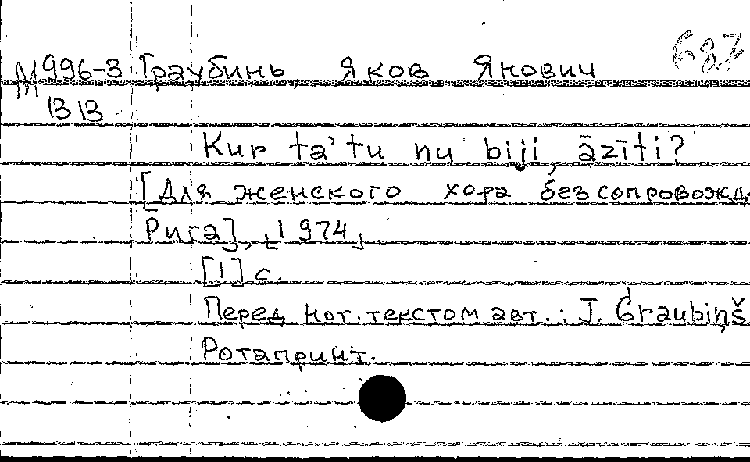 М996-3 Граубинь, Яков Янович 637
1313
Kur ta' tu nu biji, āzīti?
[Для женского хора без сопровожд.
Рига], [1974]
[1] с.
Перед нот. текстом авт.: J. Graubiņš
Ротапринт.